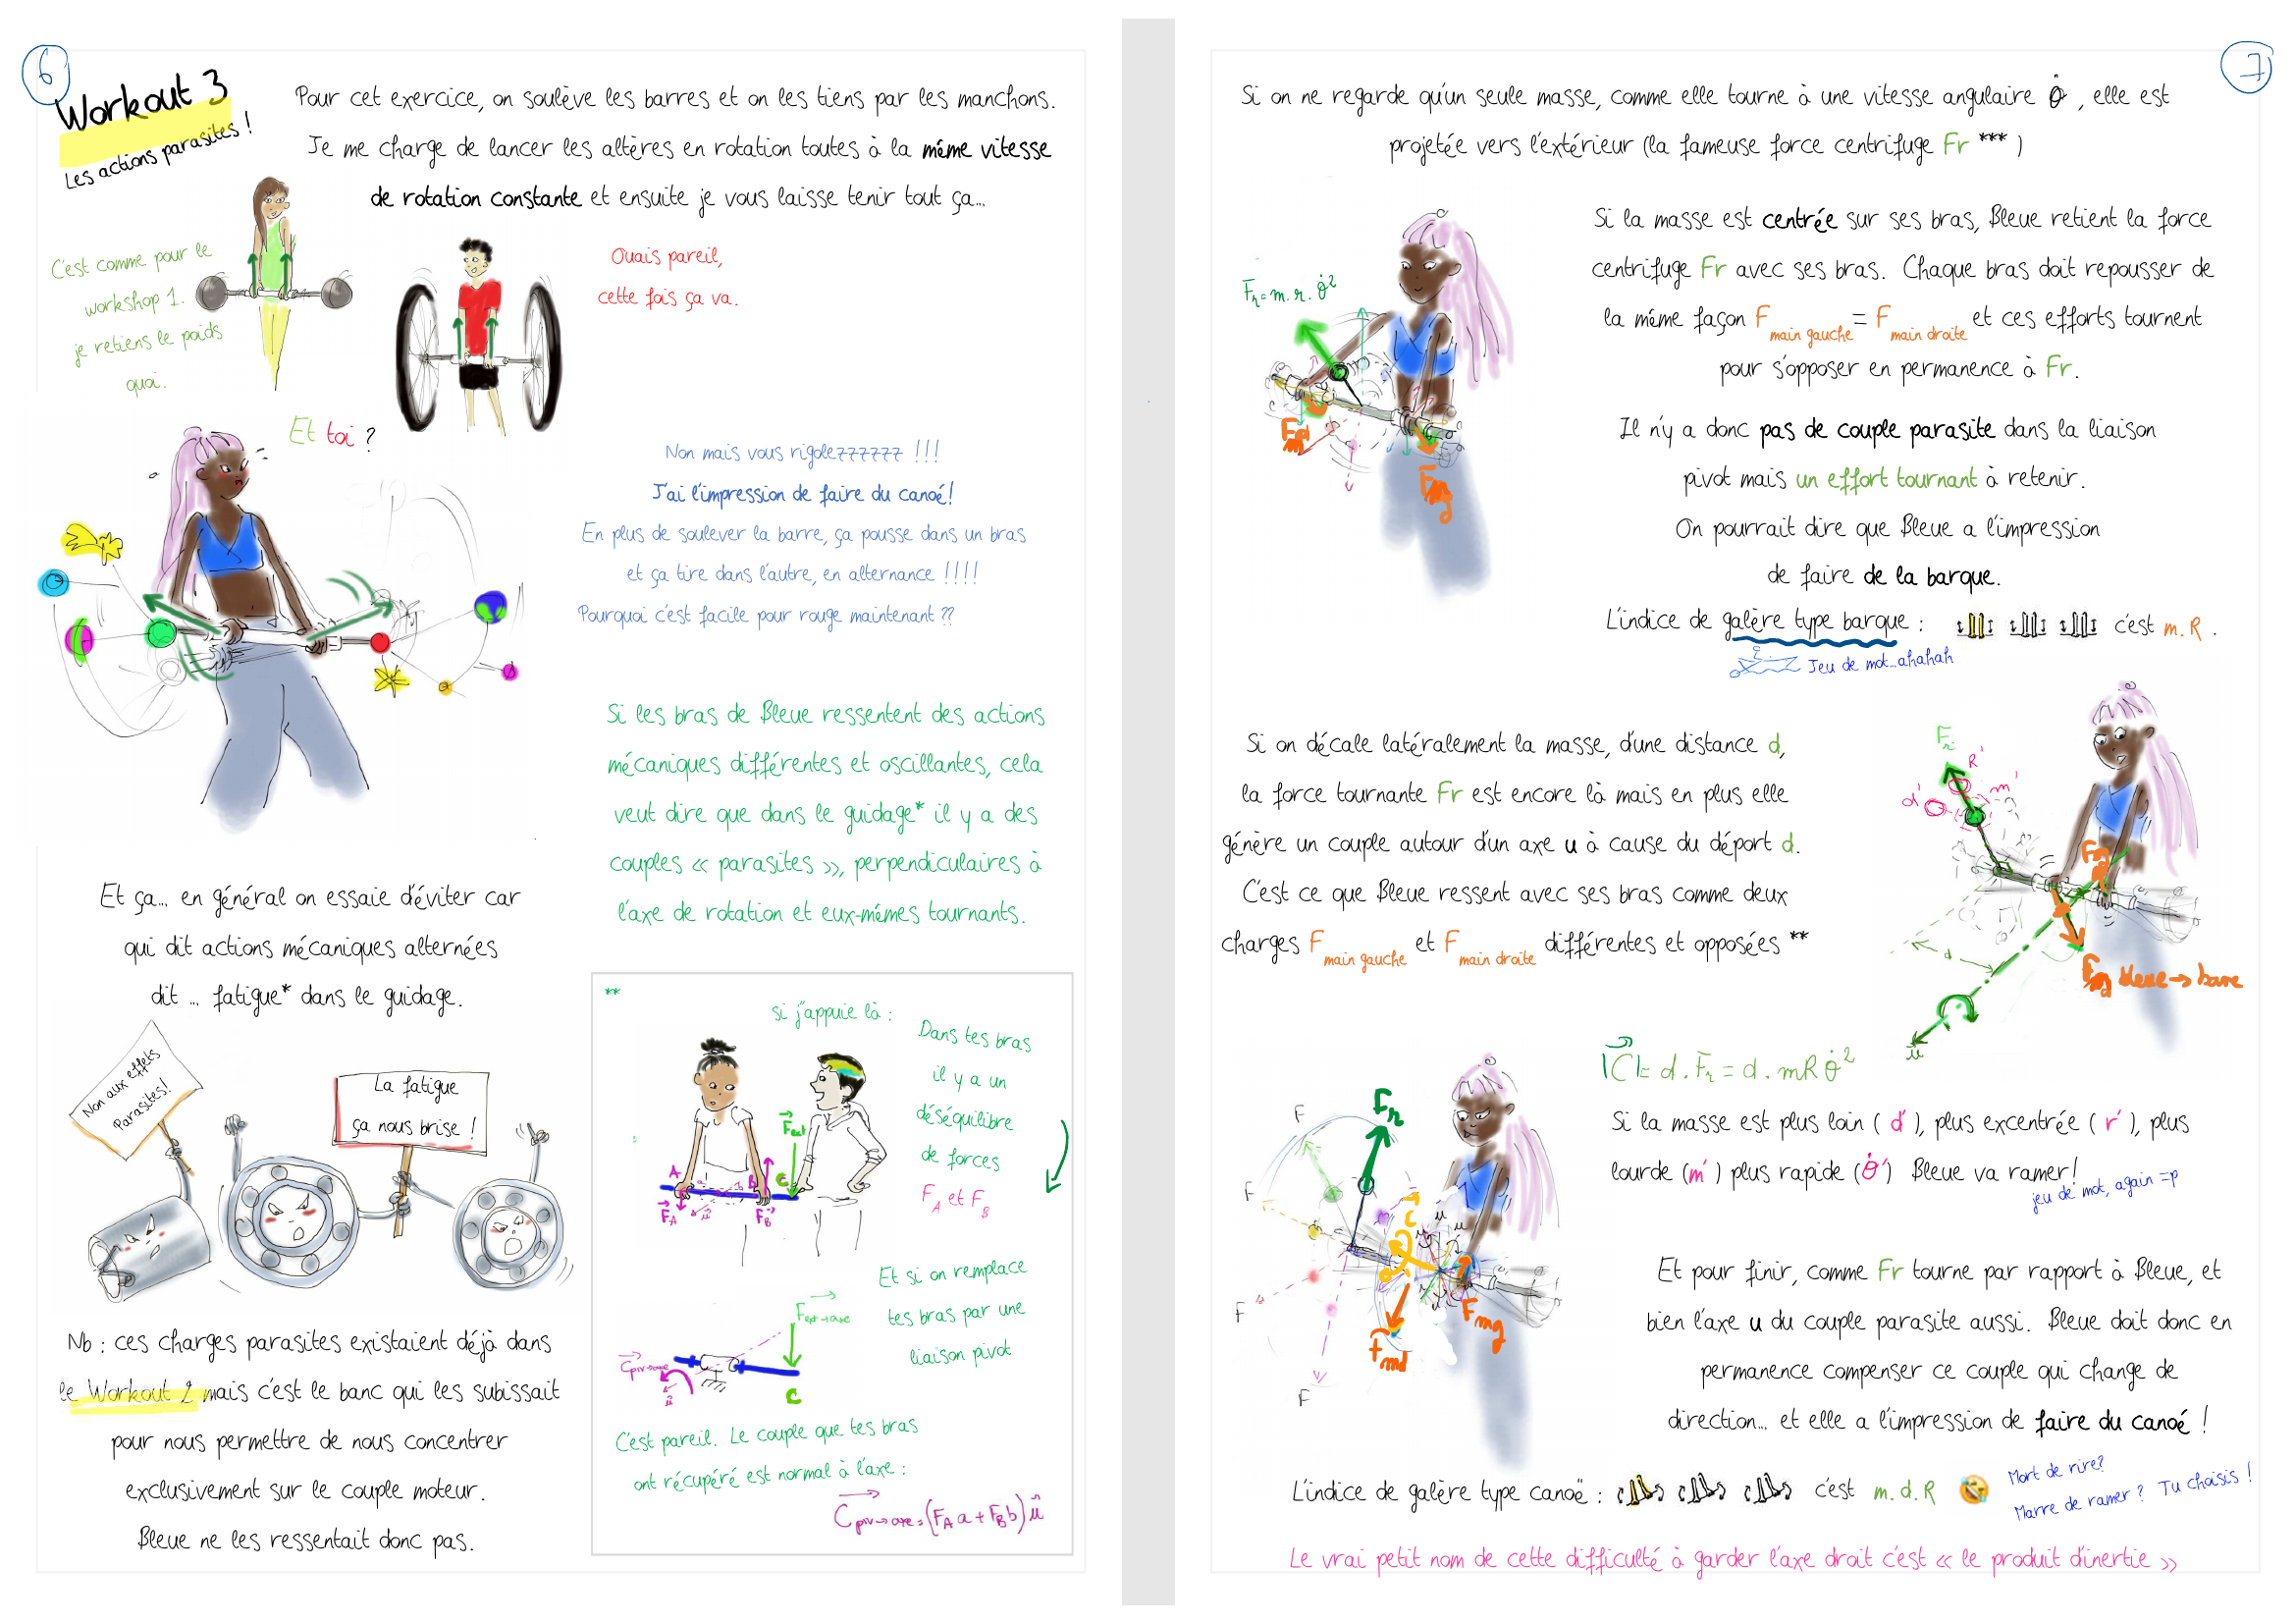 6
Workout 3
Les actions parasites !
Pour cet exercice, on soulève les barres et on les tiens par les manchons.
Je me charge de lancer les altères en rotation toutes à la même vitesse
de rotation constante et ensuite je vous laisse tenir tout ça...
C'est comme pour le
workshop 1.
je retiens le poids
quoi.
Ouais pareil,
cette fois ça va.
Et toi ?
Non mais vous rigolezzzzzz !!!
J'ai l'impression de faire du canoé!
En plus de soulever la barre, ça pousse dans un bras
et ça tire dans l'autre, en alternance !!!!
Pourquoi c'est facile pour rouge maintenant ??
Si les bras de Bleue ressentent des actions
mécaniques différentes et oscillantes, cela
veut dire que dans le guidage* il y a des
couples « parasites », perpendiculaires à
l'axe de rotation et eux-mêmes tournants.
Et ça... en général on essaie d'éviter car
qui dit actions mécaniques alternées
dit ... fatigue* dans le guidage.
Non aux effets
Parasites!
La fatigue
ça nous brise !
Nb : ces charges parasites existaient déjà dans
le Workout 2 mais c'est le banc qui les subissait
pour nous permettre de nous concentrer
exclusivement sur le couple moteur.
Bleue ne les ressentait donc pas.
**
si j'appuie là :
Dans tes bras
il y a un
déséquilibre
de forces
F_A et F_B
F_ext
A
B
C
F_A
F_B
Et si on remplace
tes bras par une
liaison pivot
F_ext→axe
C_piv→axe
u
C
C'est pareil. Le couple que tes bras
ont récupéré est normal à l'axe :
C_piv→axe = (F_A a + F_B b) u
7
Si on ne regarde qu'un seule masse, comme elle tourne à une vitesse angulaire θ̇ , elle est
projetée vers l'extérieur (la fameuse force centrifuge Fr *** )
F_r = m. r. θ̇²
Si la masse est centrée sur ses bras, Bleue retient la force
centrifuge Fr avec ses bras. Chaque bras doit repousser de
la même façon F main gauche = F main droite et ces efforts tournent
pour s'opposer en permanence à Fr.
Fmd
Fmg
Il n'y a donc pas de couple parasite dans la liaison
pivot mais un effort tournant à retenir.
On pourrait dire que Bleue a l'impression
de faire de la barque.
L'indice de galère type barque : c'est m. R .
Jeu de mot...ahahah
Si on décale latéralement la masse, d'une distance d,
la force tournante Fr est encore là mais en plus elle
génère un couple autour d'un axe u à cause du déport d.
C'est ce que Bleue ressent avec ses bras comme deux
charges F main gauche et F main droite différentes et opposées **
F_r
R'
m'
d'
d
u
bleue → barre
|C| = d . F_r = d . mRθ̇²
Si la masse est plus loin ( d' ), plus excentrée ( r' ), plus
lourde (m' ) plus rapide (θ̇') Bleue va ramer!
jeu de mot, again =p
F
F
F
F
Fr
C
u
u
Fmd
Fmg
Et pour finir, comme Fr tourne par rapport à Bleue, et
bien l'axe u du couple parasite aussi. Bleue doit donc en
permanence compenser ce couple qui change de
direction... et elle a l'impression de faire du canoé !
L'indice de galère type canoë : c'est m. d. R
Mort de rire?
Marre de ramer ? Tu choisis !
Le vrai petit nom de cette difficulté à garder l'axe droit c'est « le produit d'inertie »